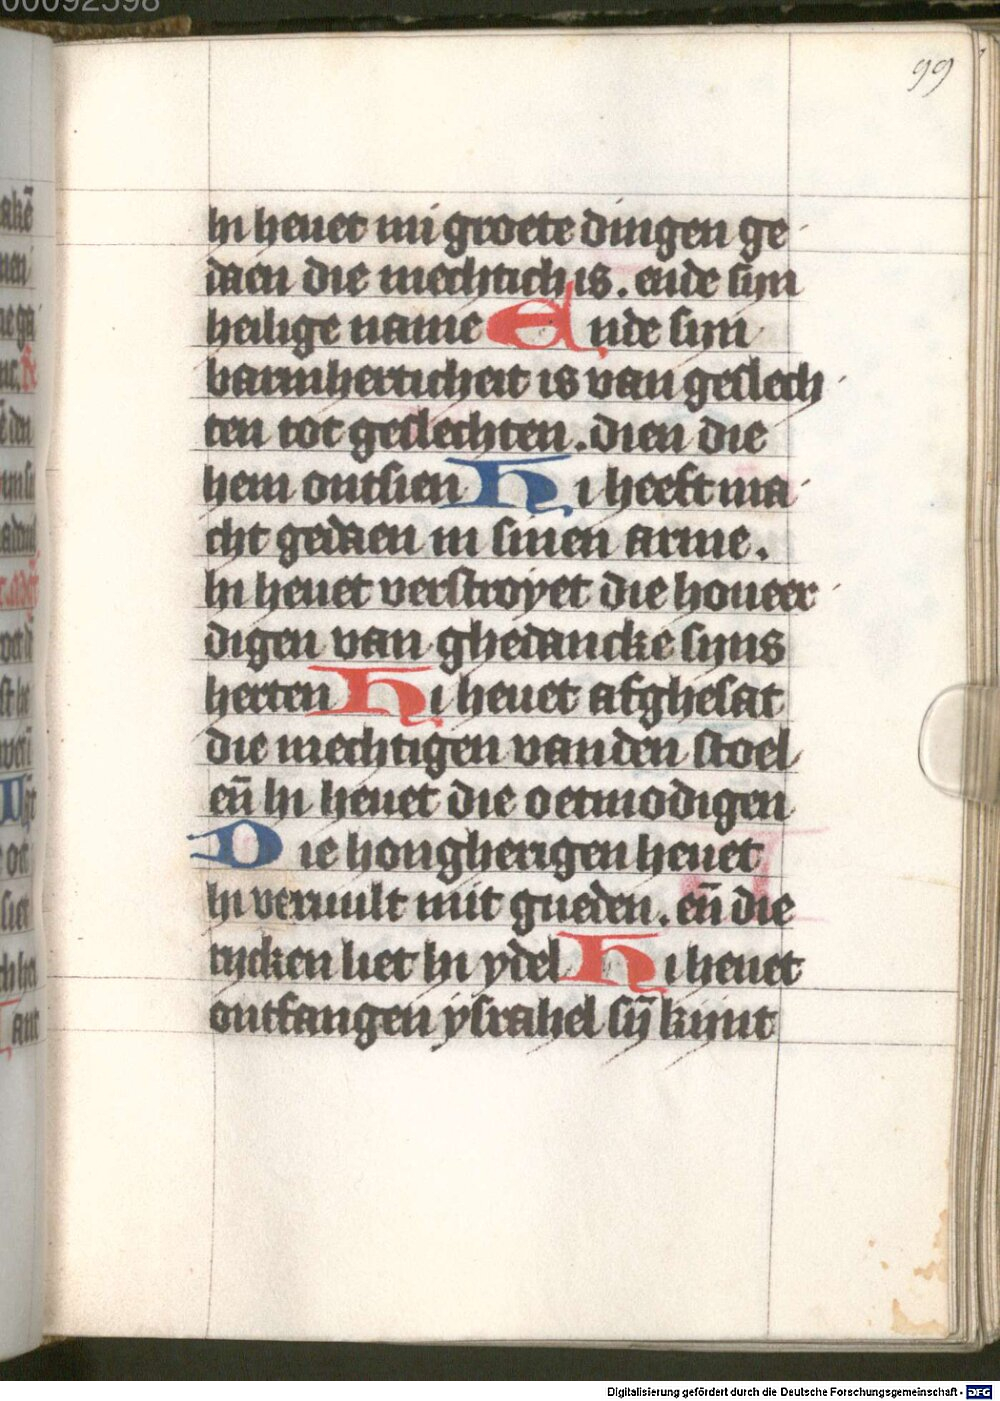 99
hi heuet mi groete dingen ge
daen die mechtich is. ende sijn
heilige name Ende sijn
barmherticheit is van geslech
ten tot geslechten. dien die
hem ontsien Hi heeft ma
cht gedaen in sinen arme.
hi heuet verstroyet die houeer
digen van ghedancke sijns
herten Hi heuet afghesat
die mechtigen van den stoel
en̄ hi heuet die oetmodigen
Die hongherigen heuet
hi veruult mit gueden. en̄ die
rijcken liet hi ydel Hi heuet
ontfangen ysrahel sij̄ kijnt
Digitalisierung gefördert durch die Deutsche Forschungsgemeinschaft - DFG